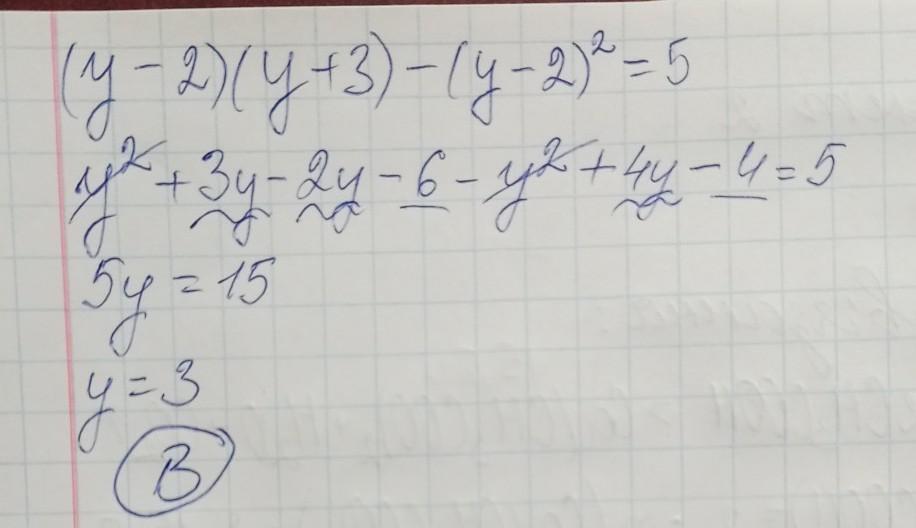 (y - 2)(y + 3) - (y - 2)² = 5
y² + 3y - 2y - 6 - y² + 4y - 4 = 5
5y = 15
y = 3
B